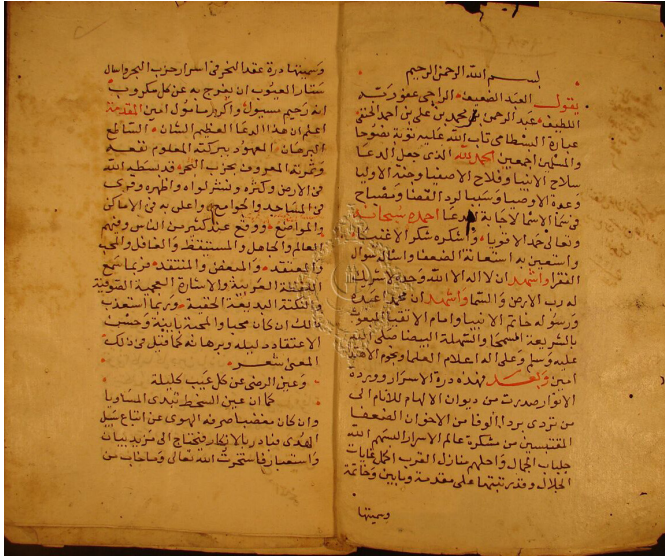 بسم الله الرحمن الرحيم
يقول العبد الضعيف الراجي عفو ربه
اللطيف عبد الرحمن بن محمد بن علي بن احمد الحنفي
البسطامي تاب الله عليه توبة نصوحا
والمسلمين اجمعين الحمد لله الذي جعل الدعا
سلاح الانبيا وفلاح الاصفيا وجنة الاوليا
وعدة الاوصيا وسببا لرد القضا ومصباح
الاجابة الدعا احمده سبحانه
وتعالى حمد الاقويا واشكره شكر الاغنيا
واستعين به استعانة الضعفا واساله سوال
الفقرا واشهد ان لا اله الا الله وحده لا شريك
له رب الارض والسما واشهد ان محمدا عبده
ورسوله خاتم الانبيا وامام الاتقيا المبعوث
بالشريعة السمحا والملة البيضا صلى الله
عليه وسلم وعلى اله اعلام العلما ونجوم الاهتدا
امين وبعد فهذه درة الاسرار ووردة
الانوار صدرت من ديوان الالهام للانام الى
من تردى بردا الوفا من الاخوان الضعفا
المقتبسين من مشكوة عالم الاسرار البسهم الله
جلباب الجمال واحلهم منازل القرب الاجمل بغايات
الجلال وقد رتبتها على مقدمة وبابين وخاتمة
وسميتها
وسميتها درة عقد النحر في اسرار حزب البحر واسال
ستار العيوب ان يفرج به عن كل مكروب
انه رحيم مسيول واكرم مامول امين المقدمة
اعلم ان هذا الدعا العظيم الشان الساطع
البرهان المعهود ببركته المعلوم نفعه
وثمرته المعروف بحزب البحر قد بسطه الله
في الارض وكثره ونشر لواه واظهره وقرى
في المساجد والجوامع واعلن به في الاماكن
والمواضع ووقع عند كثير من الناس وفيهم
العالم والجاهل والمستيقظ والغافل والمحب
والمعتقد والمبغض والمنتقد فربما سمع
اللفظة العربية والاشارة العجمية الصوفية
والنكتة البديعة الخفية وربما استعذب
ذلك ان كان محبا والمحبة بابيه وحسن
الاعتقاد دليله وبرهانه كما قيل في ذلك
المعنى شعر
وعين الرضى عن كل عيب كليلة
كما ان عين السخط تبدى المساويا
وان كان مبغضا صرفه الهوى عن اتباع سبيل
الهدى فبادر بالانكار فتحتاج الى مزيد بيان
فاستخرت الله تعالى وما خاب من